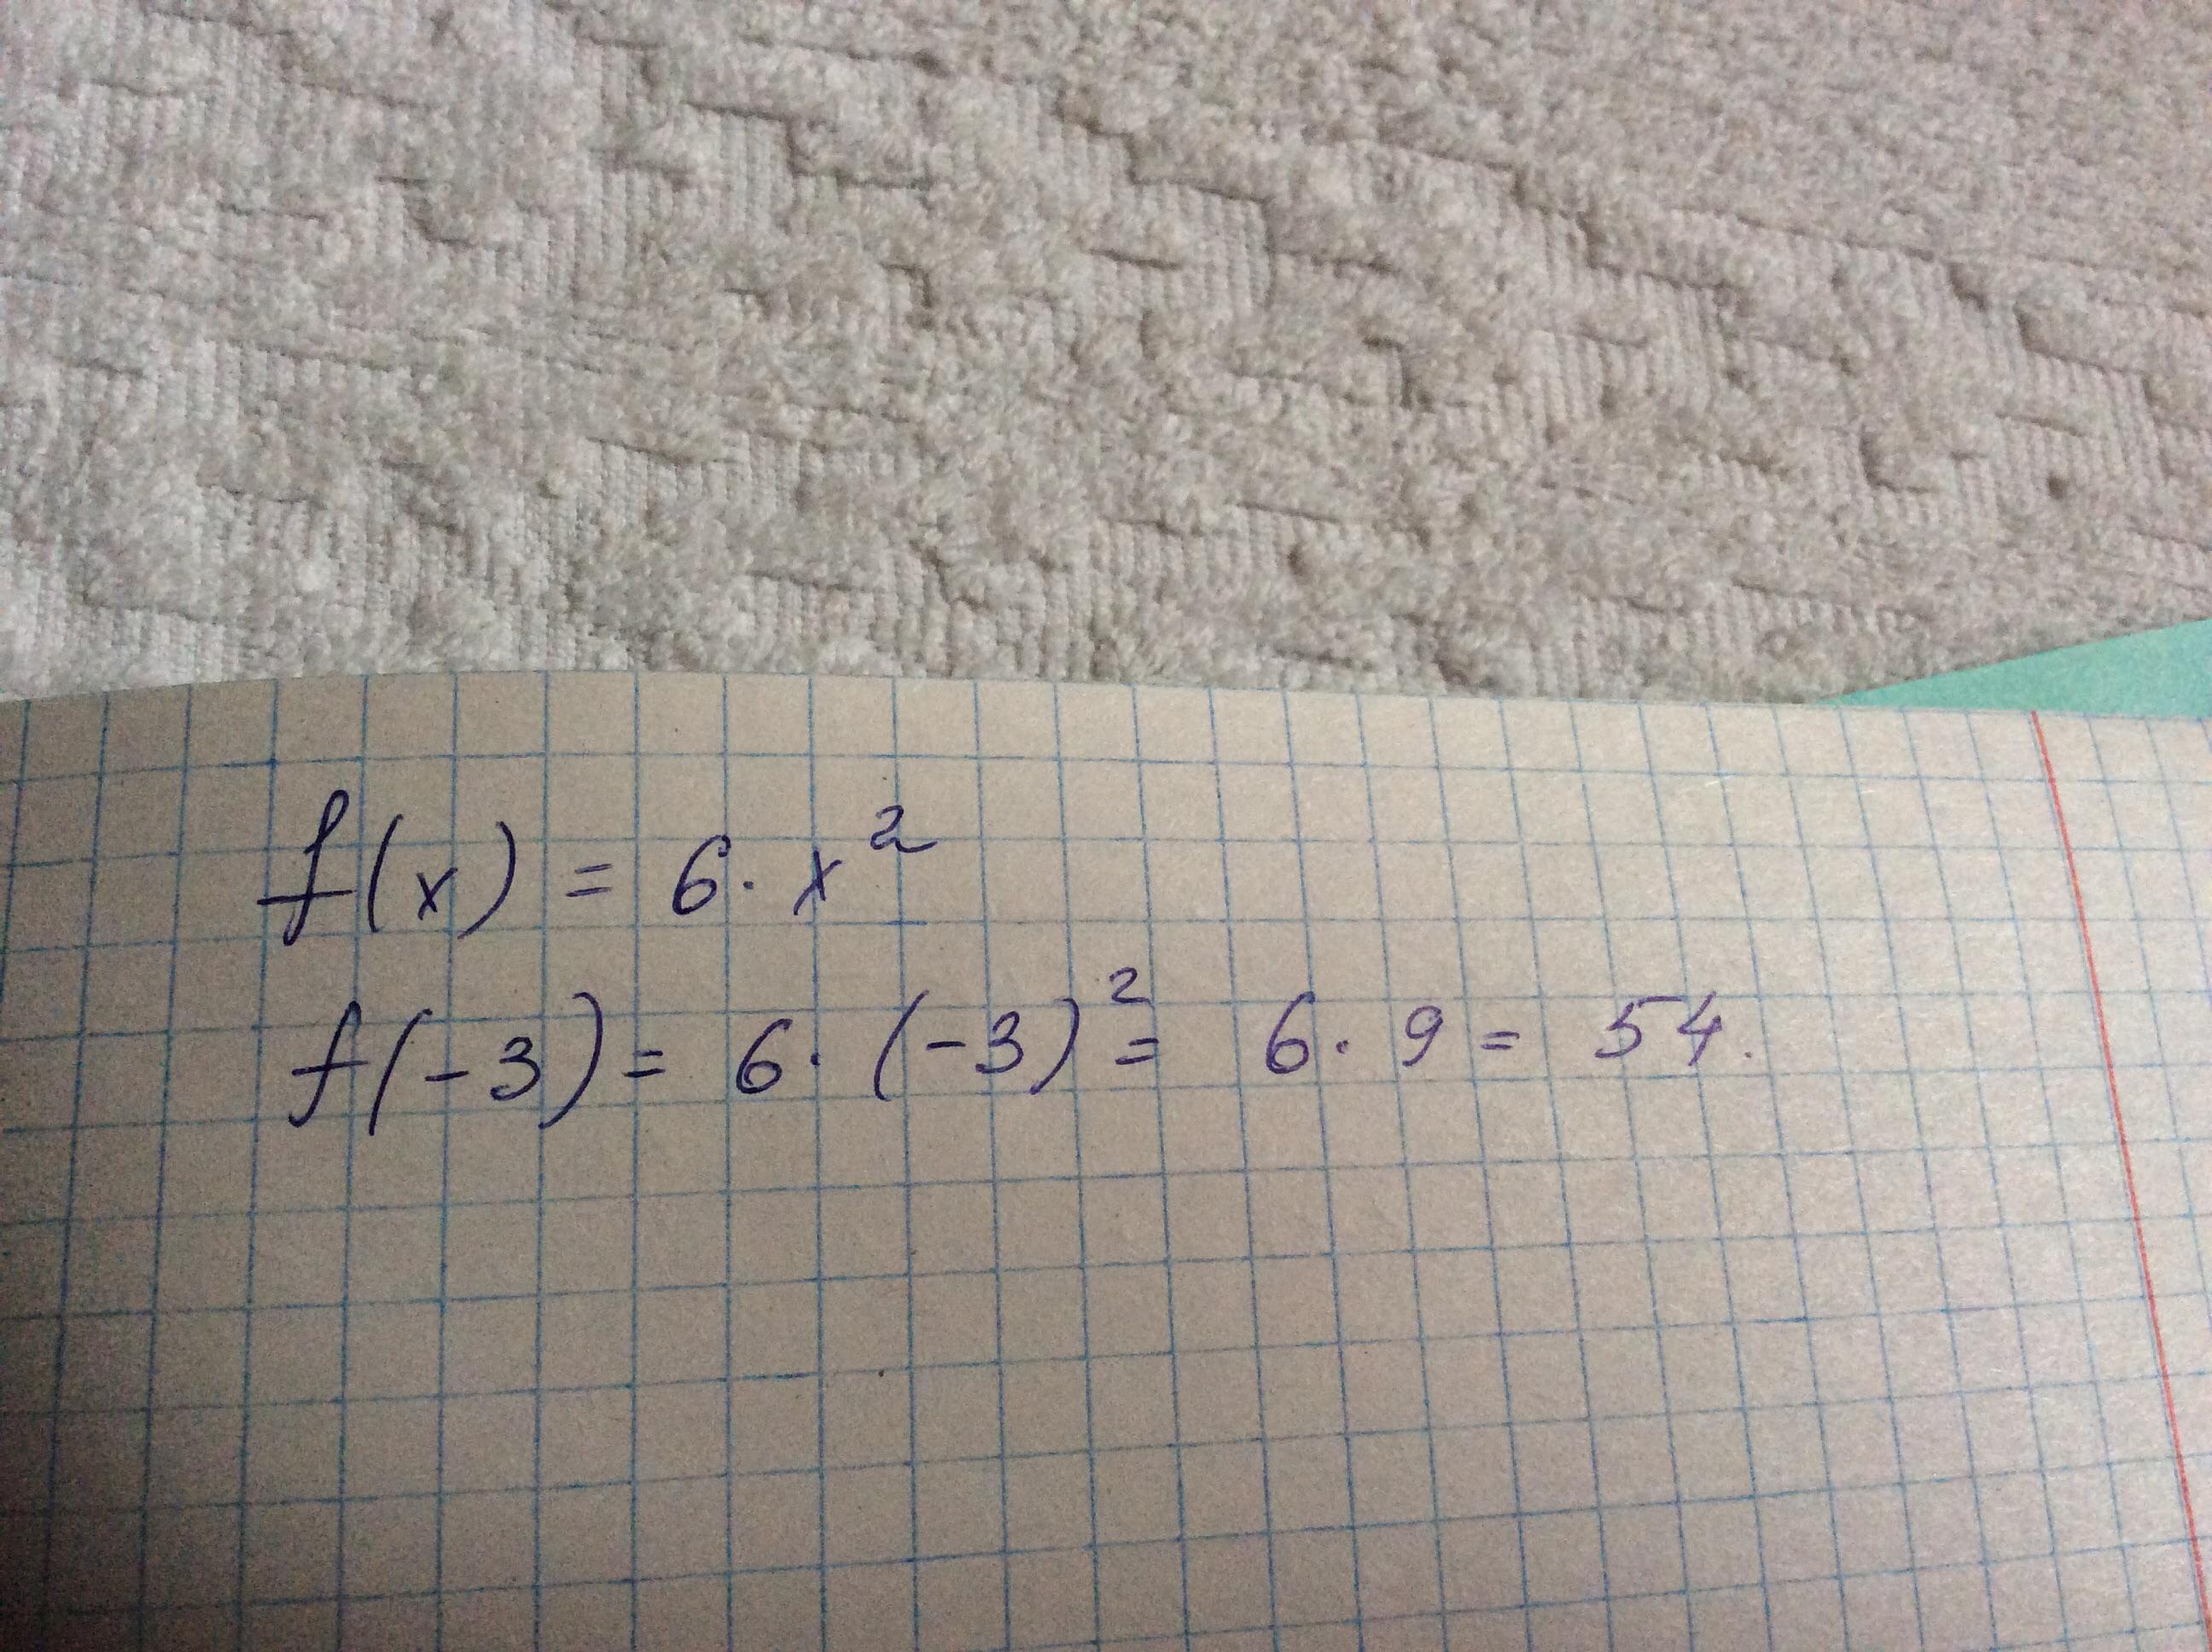 f(x) = 6 · x²
f(-3) = 6 · (-3)² = 6 · 9 = 54.